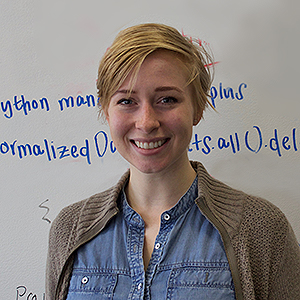 ython man plus
ormalizedD ts.all().del
P